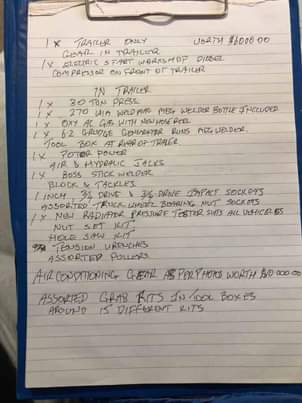 1 x TRAILER ONLY WORTH $6000.00
GEAR IN TRAILER
1 x ELECTRIC START WORKSHOP DIESEL
COMPRESSOR ON FRONT OF TRAILER
IN TRAILER
1 x 30 TON PRESS
1 x 270 UIA WELDMATE MEG WELDER BOTTLE INCLUDED
1 x OXY AC GAS WITH NEW HOSE REEL
1 x 6.2 GRUDGE GENERATOR RUNS MEG WELDER.
TOOL BOX AT REAR OF TRAILER
1 x PORTER POWER
AIR & HYDRALIC JACKS
1 x BOSS STICK WELDER
BLOCK & TACKLES
1 INCH, 3/4 DRIVE & 3/4 DRIVE IMPACT SOCKETS
ASSORTED TRUCK WHEEL BEARING NUT SOCKETS
1 x NEW RADIATOR PRESSURE TESTER SUITS ALL VEHICLES
NUT SET KIT,
HOLE SAW KIT
TENSION WRENCHES
ASSORTED PULLERS
AIR CONDITIONING GEAR AS PER PHOTOS WORTH $10 000.00
ASSORTED GRAB KITS IN TOOL BOXES
AROUND 15 DIFFERENT KITS